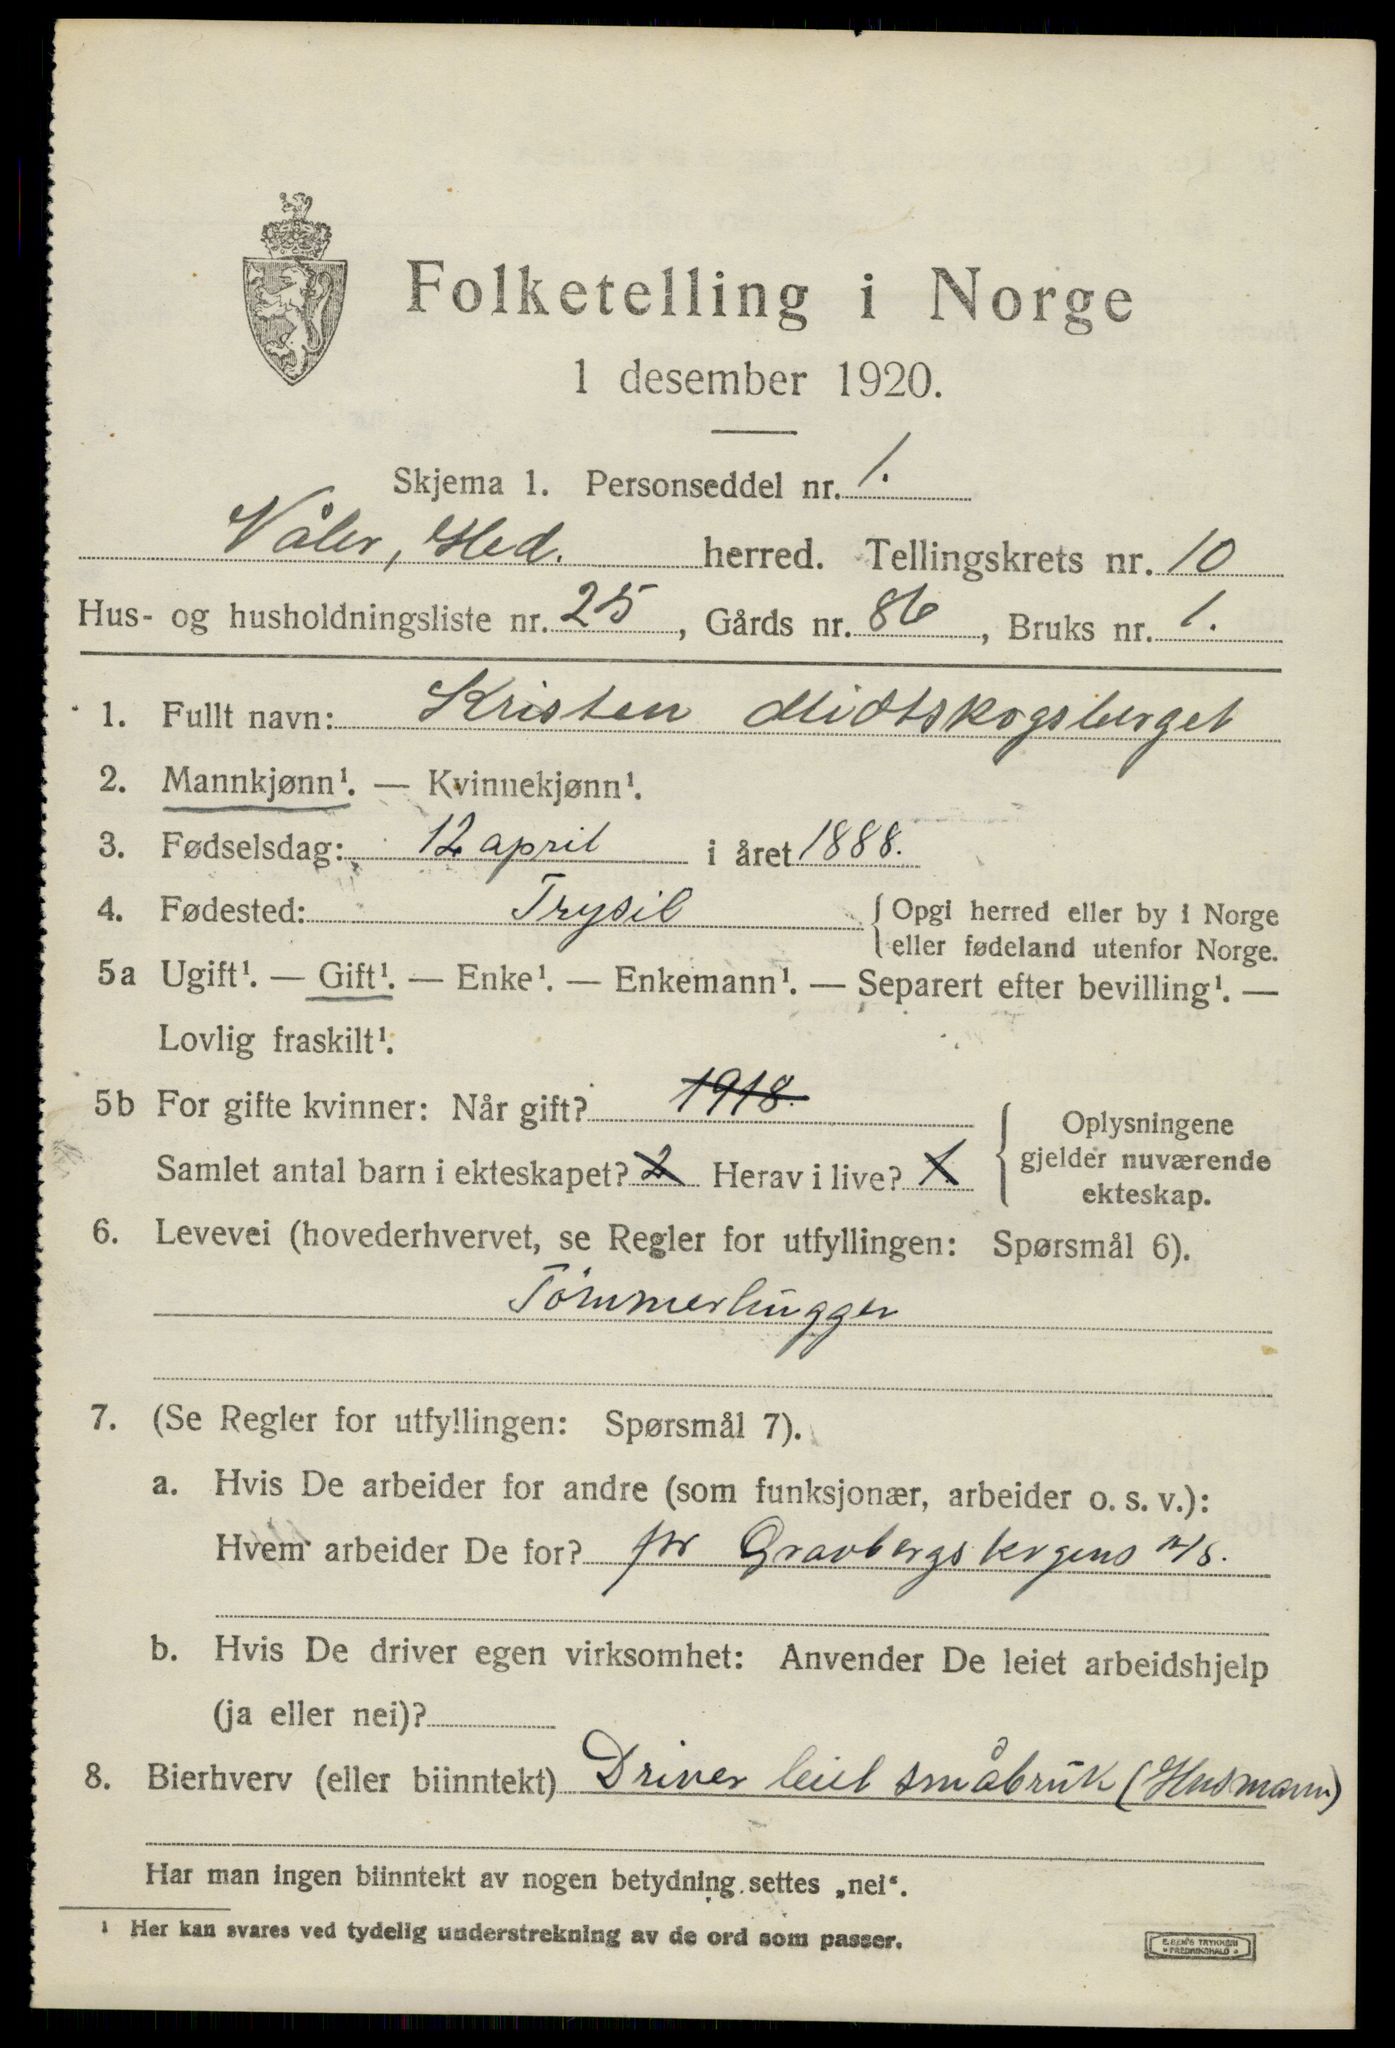 Folketelling i Norge
1 desember 1920.
Skjema 1. Personseddel nr. 1.
Våler, Hed. herred. Tellingskrets nr. 10
Hus- og husholdningsliste nr. 25, Gårds nr. 86, Bruks nr. 1.
1. Fullt navn: Kristen Midtskogsberget
2. Mannkjønn¹. — Kvinnekjønn¹.
3. Fødselsdag: 12 april i året 1888.
4. Fødested: Trysil { Opgi herred eller by i Norge
eller fødeland utenfor Norge.
5a Ugift¹. — Gift¹. — Enke¹. — Enkemann¹. — Separert efter bevilling¹. —
Lovlig fraskilt¹.
5b For gifte kvinner: Når gift? 1918.
Samlet antal barn i ekteskapet? 2 Herav i live? 1
{ Oplysningene
gjelder nuværende
ekteskap.
6. Levevei (hovederhvervet, se Regler for utfyllingen: Spørsmål 6).
Tömmerhugger
7. (Se Regler for utfyllingen: Spørsmål 7).
a. Hvis De arbeider for andre (som funksjonær, arbeider o. s. v.):
Hvem arbeider De for? for Gravbergskogens A/S.
b. Hvis De driver egen virksomhet: Anvender De leiet arbeidshjelp
(ja eller nei)?
8. Bierhverv (eller biinntekt) Driver leiet småbruk (Husmann)
Har man ingen biinntekt av nogen betydning settes „nei“.
¹ Her kan svares ved tydelig understrekning av de ord som passer.
E. SEM'S TRYKKERI
FREDRIKSHALD